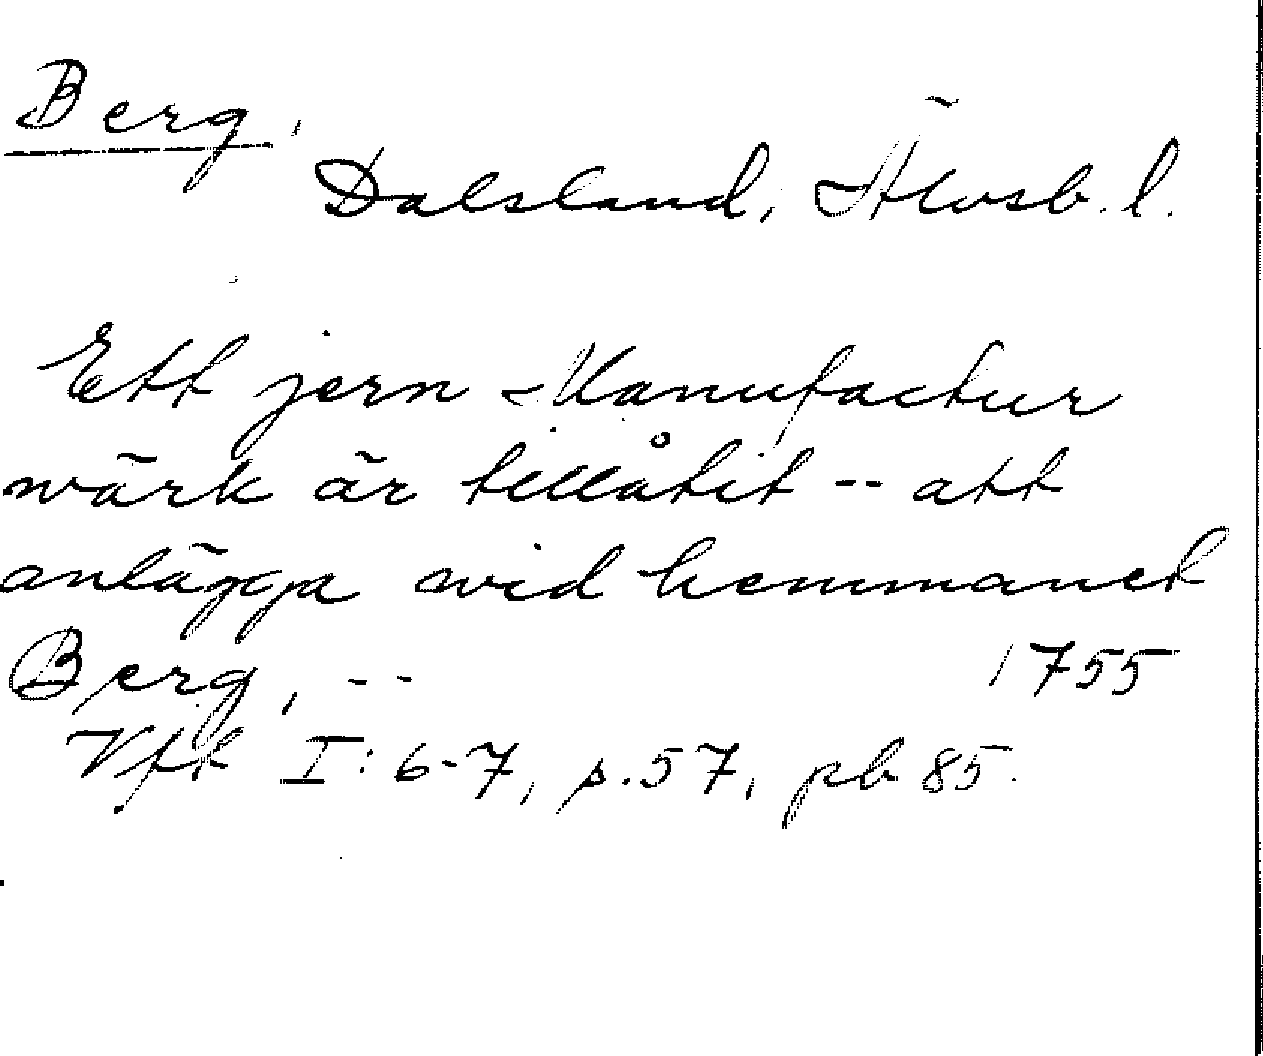 Berg,
Dalsland, Älvsb. l.
Ett jern-Manufactur
wärk är tillåtit -- att
anlägga wid hemmanet
Berg, -- 1755
Vfk I: 6-7, p. 57, pb 85.